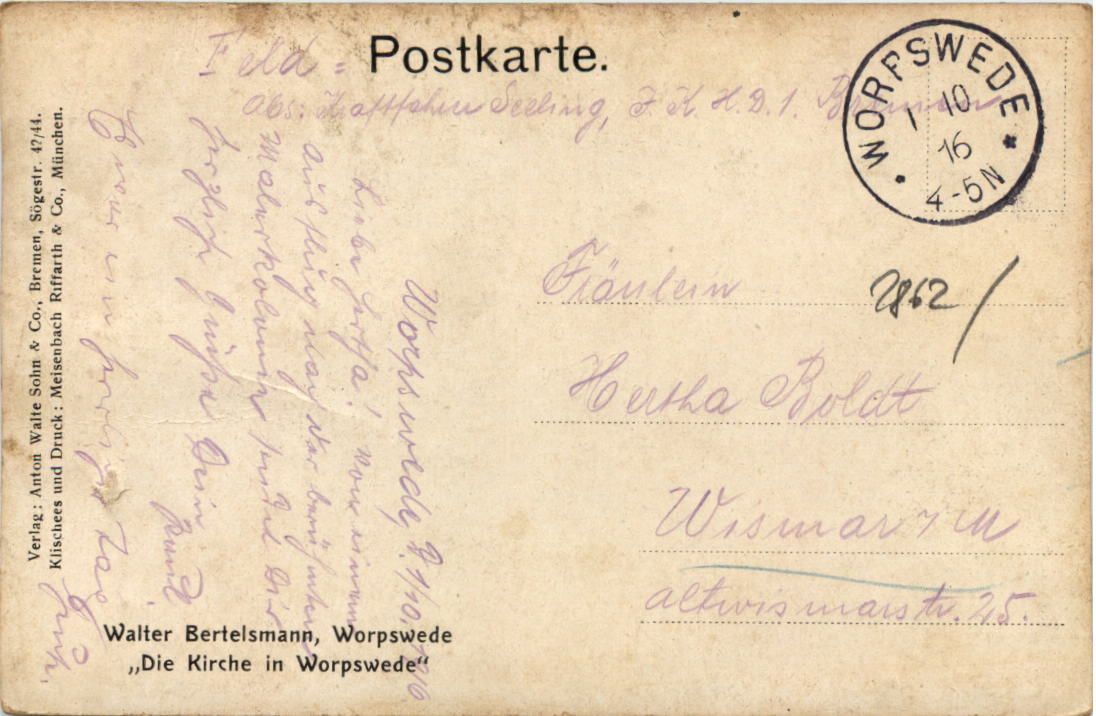 Feld = Postkarte.
Abs: Kraftfahrer Seeling, F. K. H. D. 1. Bremen
WORPSWEDE
1 10
16
4-5N
Fräulein
2862 /
Hertha Boldt
Wismar i/M
altwismarstr. 25.
Worpswede, d. 1/10. 1916
Liebe Hertha! von einem
Ausflug nach der berühmten
Malerkolonie sendet Dir
herzliche Grüße Dein
Verlag: Anton Walte Sohn & Co., Bremen, Sögestr. 42/44.
Klischees und Druck: Meisenbach Riffarth & Co., München.
Walter Bertelsmann, Worpswede
„Die Kirche in Worpswede“